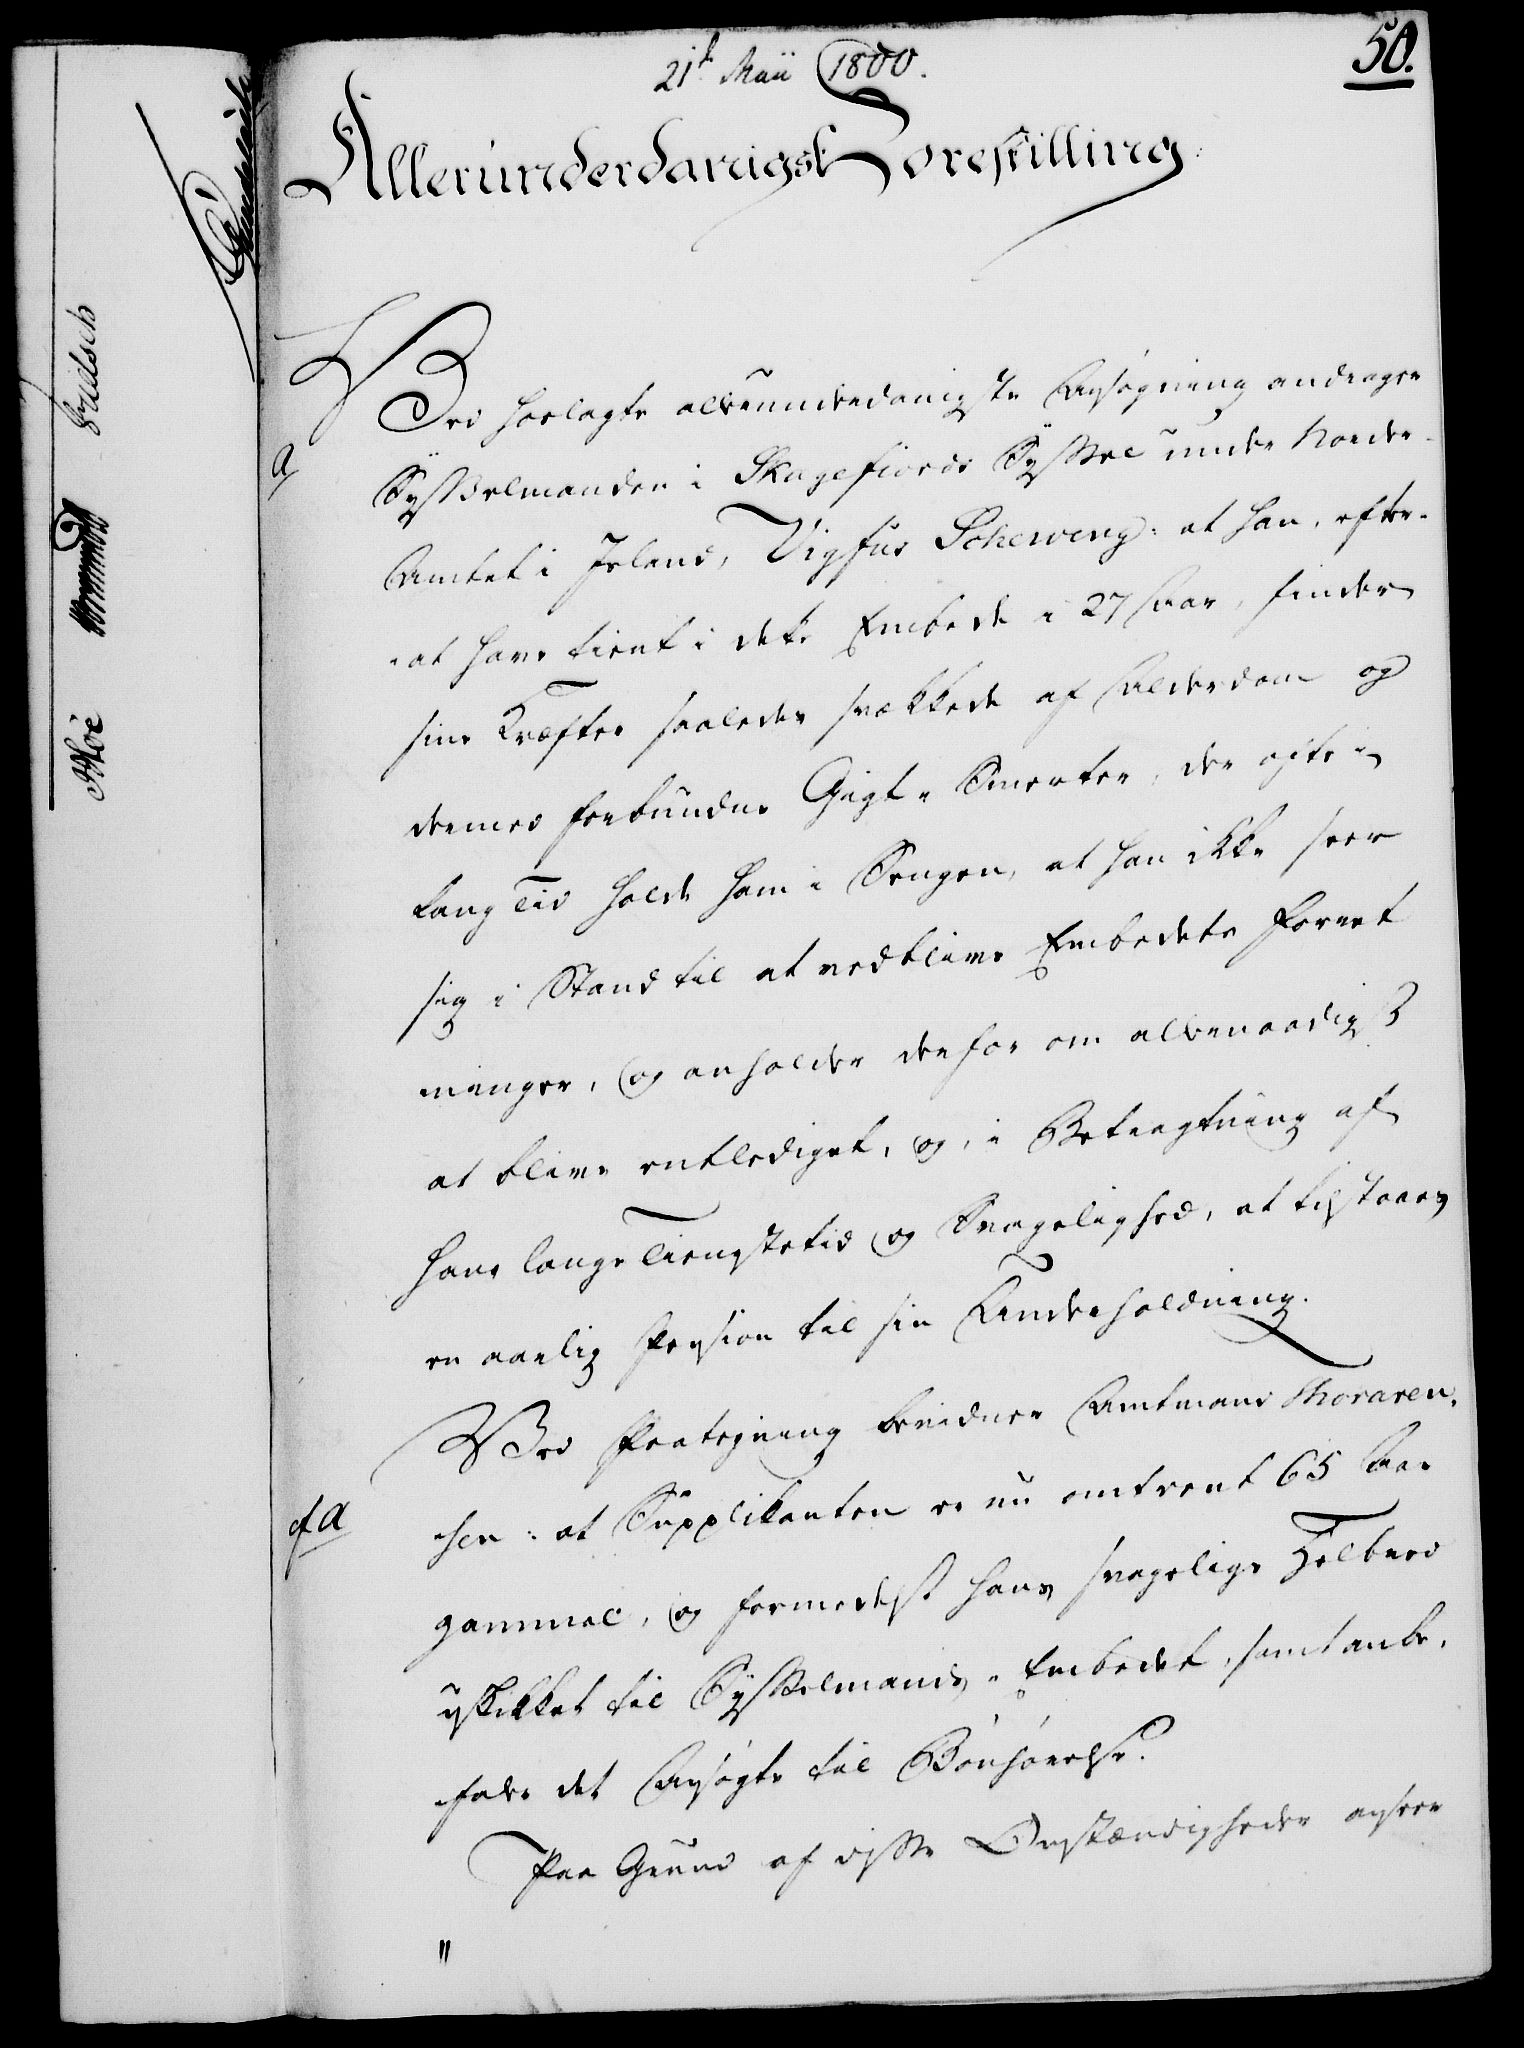 21t Maii 1800.
50.
Allerunderdanigst Forestilling
Ved hoslagte allerunderdanigste Ansøgning andrager
a
Sysselmanden i Skagefiords Syssel under Norder-
Amtet i Island, Vigfus Scheving: at han, efter
at have tient i dette Embede i 27 Aar, finder
sine Kræfter saaledes svækkede af Alderdom og
dermed forbundne Gigt-Smerter, der ofte i
lang Tid holde ham i Sengen, at han ikke seer
sig i Stand til at vedblive Embedets Forret
ninger, og anholder derfor om allernaadigst
at blive entlediget, og, i Betragtning af
hans lange Tienestetid og Svagelighed, at tilstaaes
en aarlig Pension til sin Underholdning.
Ved Paategning bevidner Amtmand Thoraren-
cf a
sen: at Supplikanten er nu omtrent 65 Aar
gammel, og formedelst hans svagelige Helbred
uskikket til Sysselmands-Embedet, samt anbe-
faler det Ansøgte til Bönhörelse.
Paa Grund af disse Omstændigheder anseer
"
Fridsch
Høe